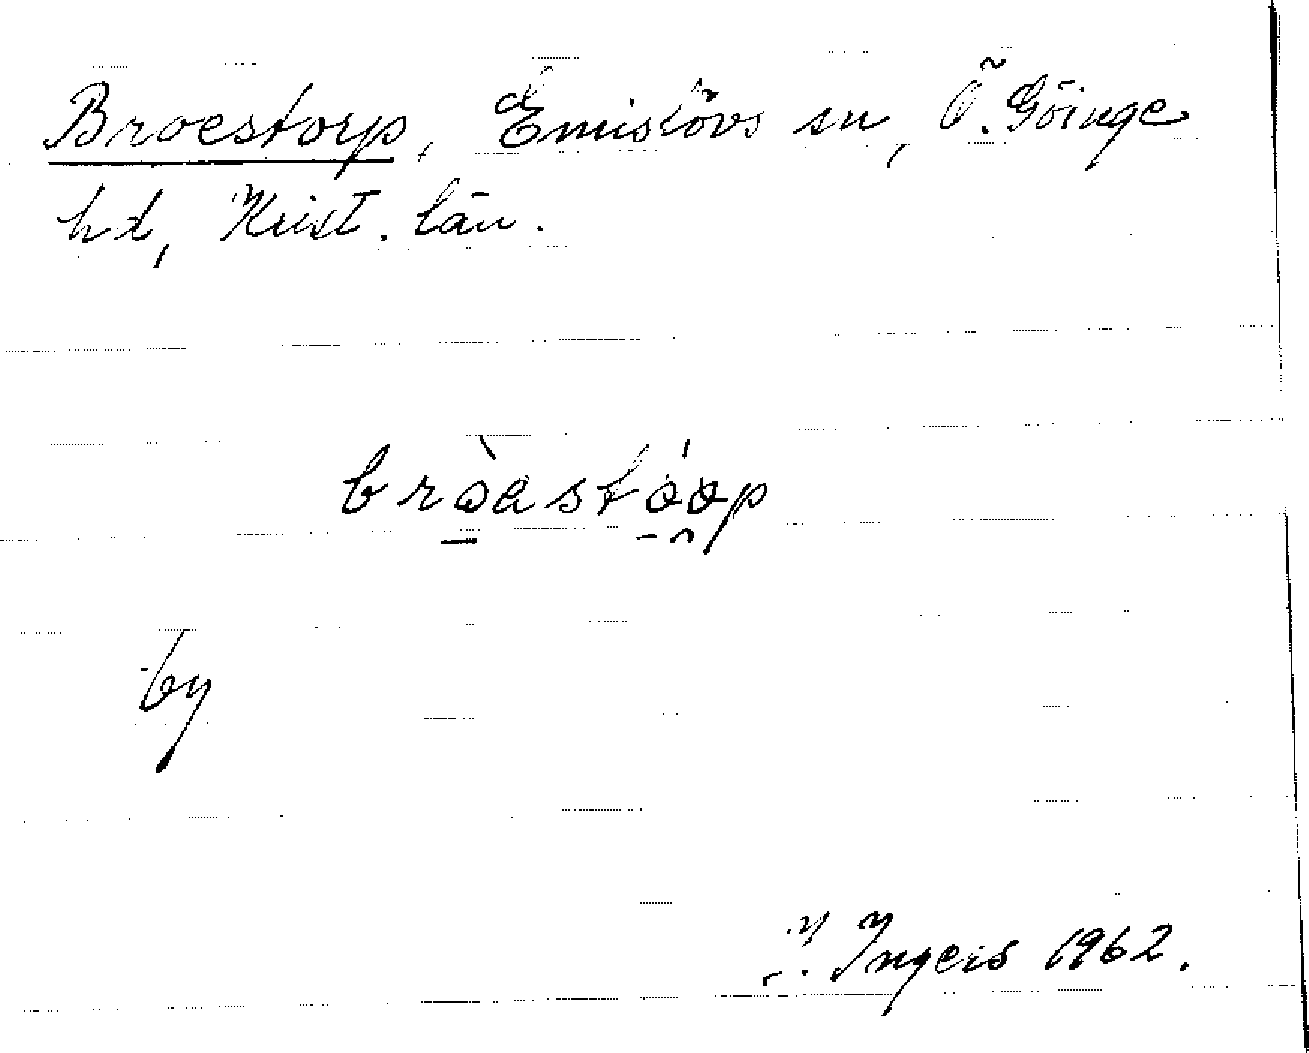 Broestorp, Emislövs sn, Ö. Göinge
hd, Krist. län.
bròestóop
by
I. Ingers 1962.